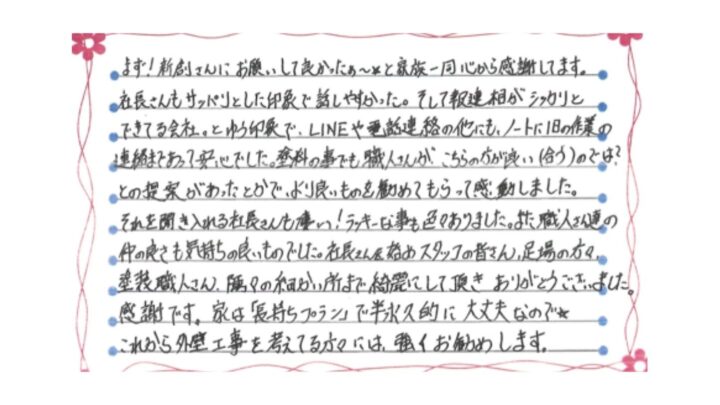 まず!新創さんにお願いして良かったぁ~★と家族一同心から感謝してます。
社長さんもサッパリとした印象で話しやすかった。そして報連相がシッカリと
できてる会社。とゆう印象で、LINEや電話連絡の他にも、ノートに1日の作業の
連絡まであって安心でした。塗料の事でも職人さんが、こちらの方が良い(合う)のでは?
との提案があったとかで、より良いものを勧めてもらって感動しました。
それを聞き入れる社長さんも凄い!ラッキーな事も色々ありました。また職人さん達の
仲の良さも気持ちの良いものでした。社長さんを始めスタッフの皆さん、足場の方々、
塗装職人さん、隅々の細かい所まで綺麗にして頂きありがとうございました。
感謝です。家は「長持ちプラン」で半永久的に大丈夫なので★
これから外壁工事を考えてる方々には、強くお勧めします。